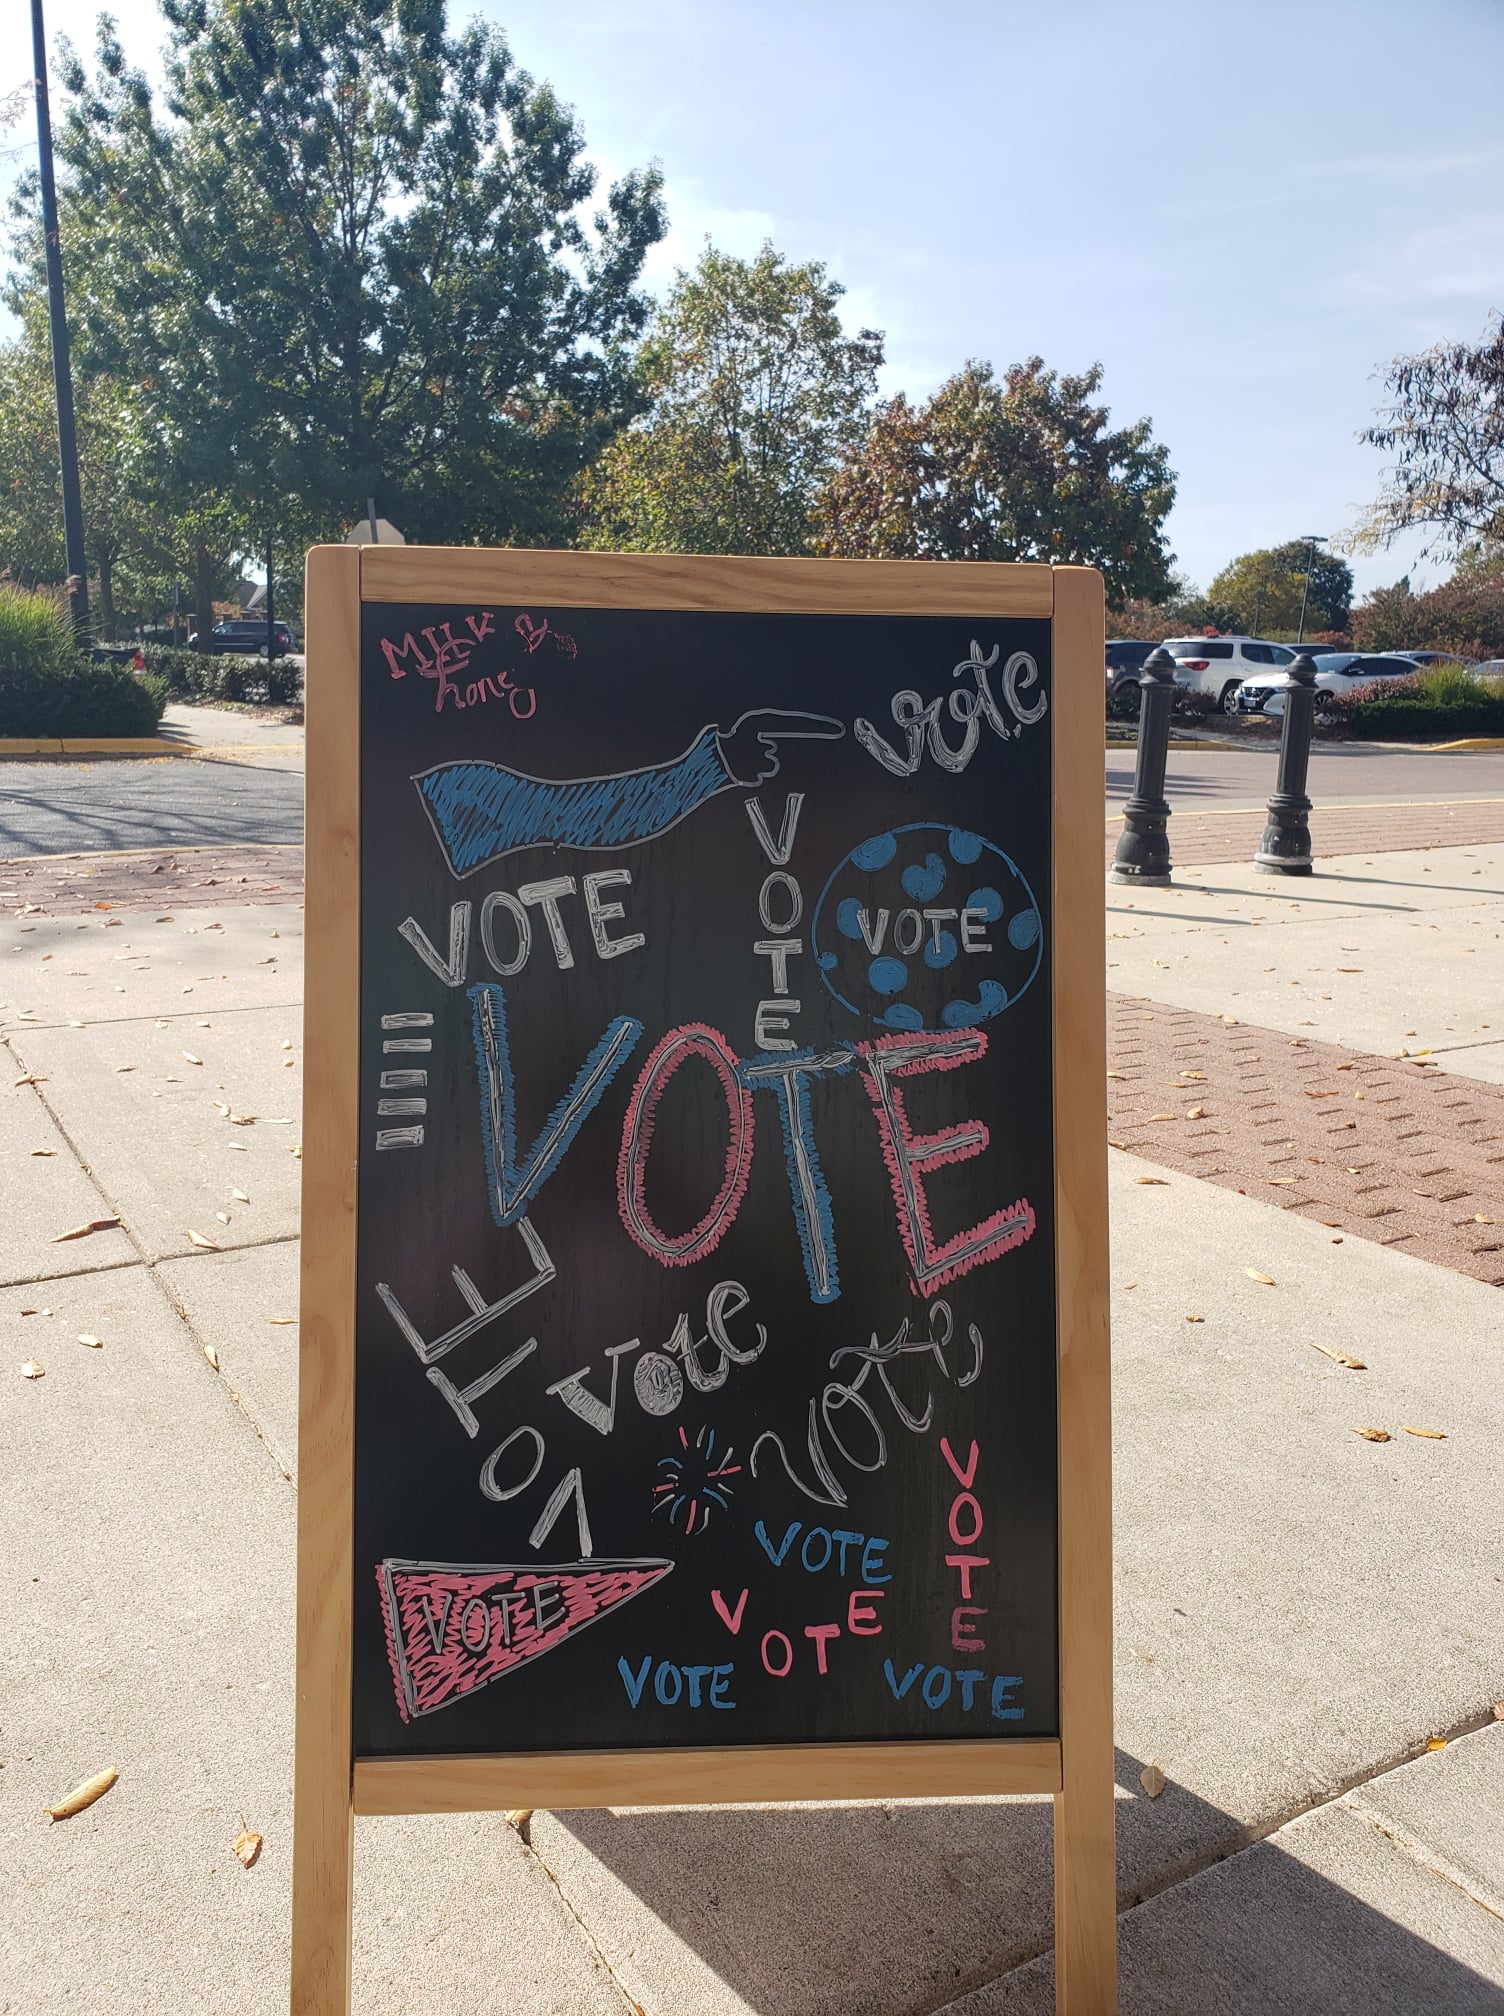 MILK &
honey
vote
VOTE
VOTE
VOTE
VOTE
VOTE
vote
vote
VOTE
VOTE
VOTE
VOTE
VOTE
VOTE
VOTE